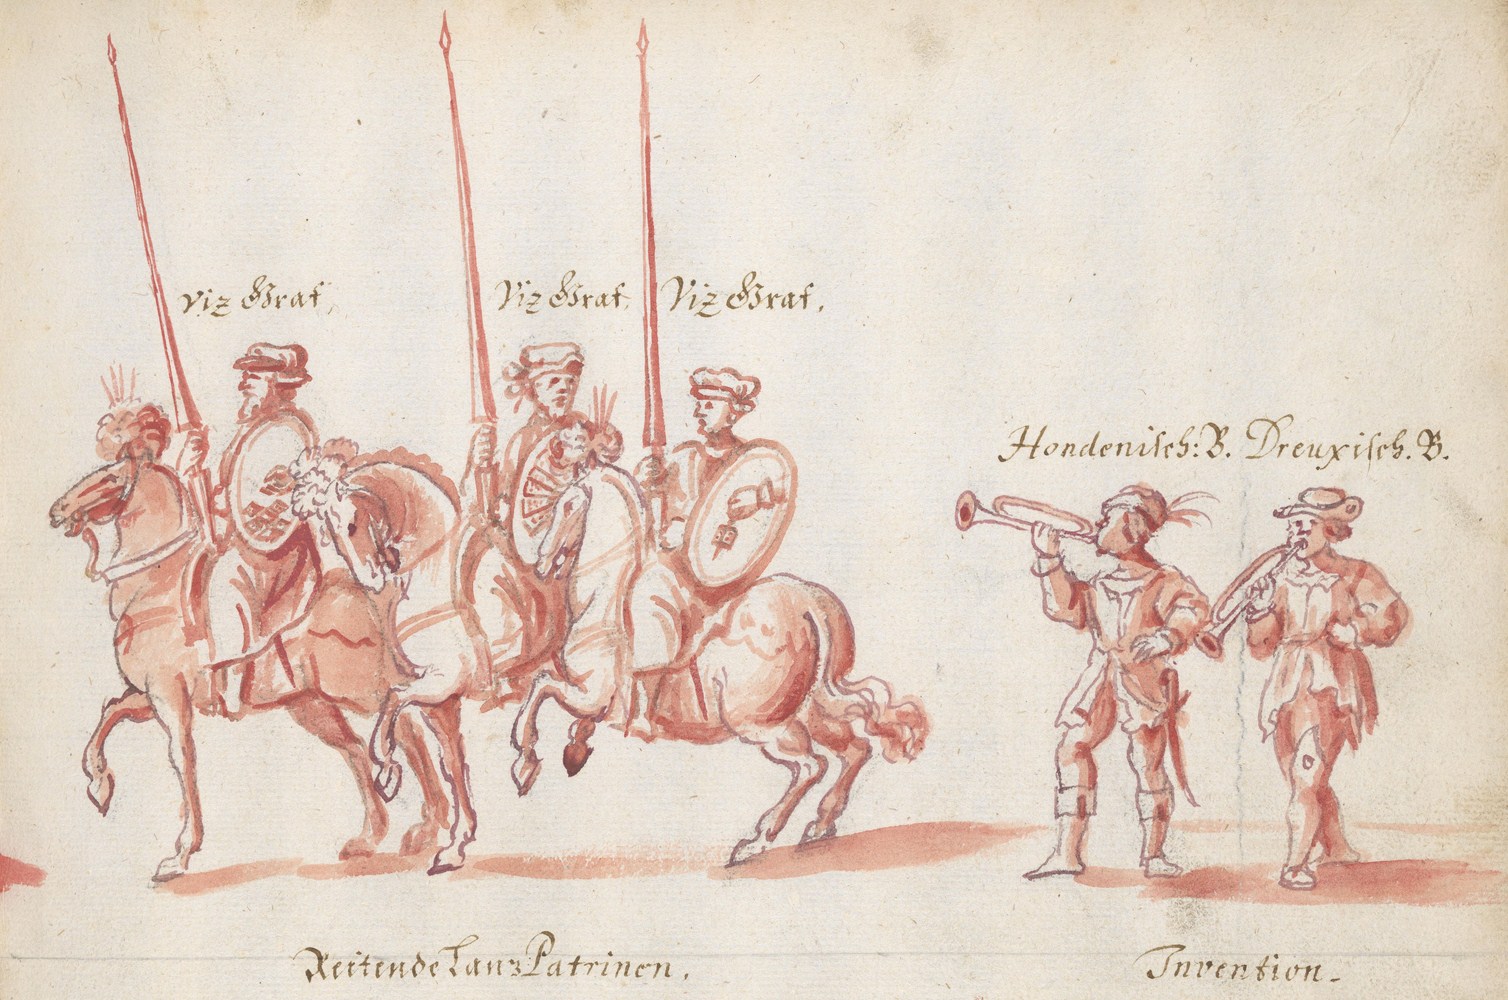 Viz Graf.
Viz Graf.
Viz Graf.
Hondenisch: B. Dreuxisch. B.
Reitende Lanz Patrinen.
Invention.